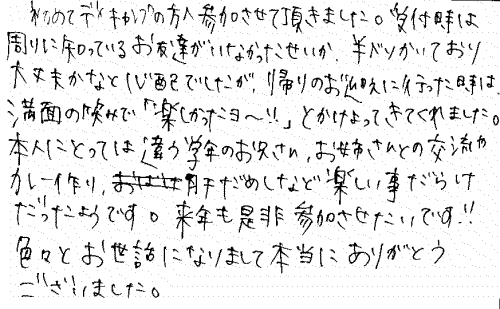 初めてデイキャンプの方へ参加させて頂きました。受付時は
周りに知っているお友達がいなかったせいか、半ベソかいており
大丈夫かなと心配でしたが、帰りのお迎えに行った時は、
満面の笑みで「楽しかったヨ〜!!」とかけよってきてくれました。
本人にとっては違う学年のお兄さん、お姉さんとの交流や
カレー作り、肝だめしなど楽しい事だらけ
だったようです。来年も是非参加させたいです!!
色々とお世話になりまして本当にありがとう
ございました。